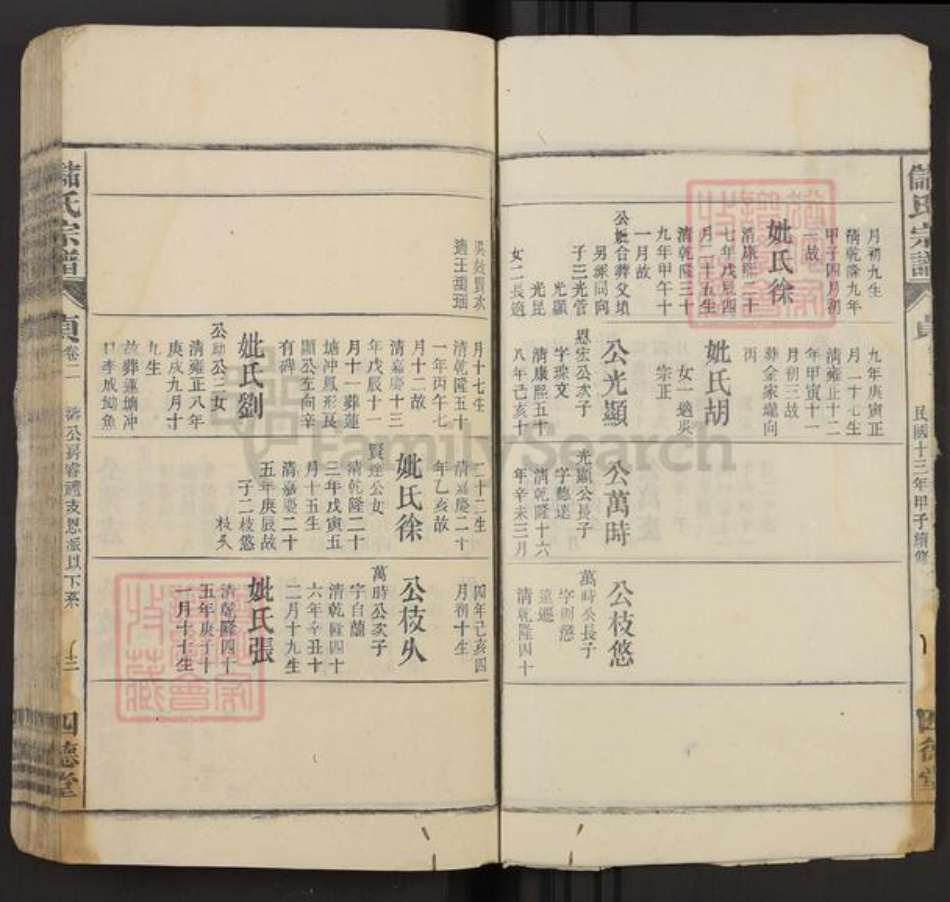 儲氏宗譜
貞
民國十三年甲子續修
四德堂
月初九生
清乾隆九年
甲子四月初
故
妣氏徐
清康熙二十
七年戊辰四
月二十五生
清乾隆三十
九年甲午十
一月故
公妣合葬父墳
另穴同向
子三光管
光顯
光昆
女二長適
九年庚寅正
月二十七生
清雍正十二
年甲寅十一
月初三故
葬金家壠向
丙
妣氏胡
女一適吳
宗正
公光顯
恩宏公次子
字璨文
清康熙五十
八年己亥十
公萬時
光顯公長子
字聽達
清乾隆十六
年辛未三月
公枝悠
萬時公長子
字則悠
清乾隆四十
吳效賢次
適王瑞瑶
月十七生
清乾隆五十
一年丙午七
月十二故
清嘉慶十三
年戊辰十一
月十一葬蓮
塘冲鳳形艮
顯公左向辛
有碑
妣氏劉
公助公三女
清雍正八年
庚戌九月十
九生
故葬蓮塘冲
二十二生
清嘉慶二十
年乙亥故
妣氏徐
賢達公女
清乾隆二十
三年戊寅五
月十五生
清嘉慶二十
五年庚辰故
子二枝悠
枝久
四年己亥四
月初十生
公枝久
萬時公次子
字台蘭
清乾隆四十
六年辛丑十
二月十九生
妣氏張
清乾隆四十
五年庚子十
一月十七生
儲氏宗譜
貞
卷二
四德堂
FamilySearch